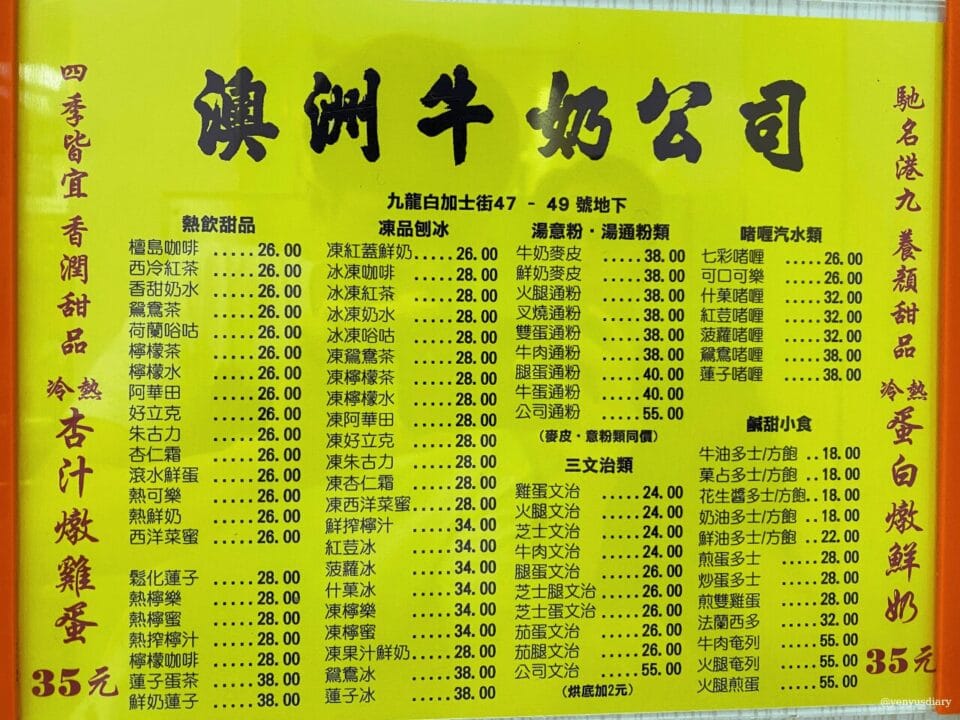 澳洲牛奶公司
九龍白加士街47 - 49 號地下
四季皆宜 香潤甜品
冷熱 杏汁燉雞蛋
35元
熱飲甜品
檀島咖啡 .....26.00
西冷紅茶 .....26.00
香甜奶水 .....26.00
鴛鴦茶 .....26.00
荷蘭唂咕 .....26.00
檸檬茶 .....26.00
檸檬水 .....26.00
阿華田 .....26.00
好立克 .....26.00
朱古力 .....26.00
杏仁霜 .....26.00
滾水鮮蛋 .....26.00
熱可樂 .....26.00
熱鮮奶 .....26.00
西洋菜蜜 .....26.00
鬆化蓮子 .....28.00
熱檸樂 .....28.00
熱檸蜜 .....28.00
熱搾檸汁 .....28.00
檸檬咖啡 .....28.00
蓮子蛋茶 .....38.00
鮮奶蓮子 .....38.00
凍品刨冰
凍紅蓋鮮奶.....26.00
冰凍咖啡 .....28.00
冰凍紅茶 .....28.00
冰凍奶水 .....28.00
冰凍唂咕 .....28.00
凍鴛鴦茶 .....28.00
凍檸檬茶 .....28.00
凍檸檬水 .....28.00
凍阿華田 .....28.00
凍好立克 .....28.00
凍朱古力 .....28.00
凍杏仁霜 .....28.00
凍西洋菜蜜.....28.00
鮮搾檸汁 .....34.00
紅荳冰 .....34.00
菠蘿冰 .....34.00
什菓冰 .....34.00
凍檸樂 .....34.00
凍檸蜜 .....34.00
凍果汁鮮奶.....28.00
鴛鴦冰 .....38.00
蓮子冰 .....38.00
湯意粉．湯通粉類
牛奶麥皮 .....38.00
鮮奶麥皮 .....38.00
火腿通粉 .....38.00
叉燒通粉 .....38.00
雙蛋通粉 .....38.00
牛肉通粉 .....38.00
腿蛋通粉 .....40.00
牛蛋通粉 .....40.00
公司通粉 .....55.00
(麥皮．意粉類同價)
三文治類
雞蛋文治 .....24.00
火腿文治 .....24.00
芝士文治 .....24.00
牛肉文治 .....24.00
腿蛋文治 .....26.00
芝士腿文治 .....26.00
芝士蛋文治 .....26.00
茄蛋文治 .....26.00
茄腿文治 .....26.00
公司文治 .....55.00
(烘底加2元)
啫喱汽水類
七彩啫喱 .....26.00
可口可樂 .....26.00
什菓啫喱 .....32.00
紅荳啫喱 .....32.00
菠蘿啫喱 .....32.00
鴛鴦啫喱 .....38.00
蓮子啫喱 .....38.00
鹹甜小食
牛油多士/方飽 ..18.00
菓占多士/方飽 ..18.00
花生醬多士/方飽..18.00
奶油多士/方飽 ..18.00
鮮油多士/方飽 ..22.00
煎蛋多士 .....28.00
炒蛋多士 .....28.00
煎雙雞蛋 .....28.00
法蘭西多 .....32.00
牛肉奄列 .....55.00
火腿奄列 .....55.00
火腿煎蛋 .....55.00
馳名港九 養顏甜品
冷熱 蛋白燉鮮奶
35元
@yenyusdiary